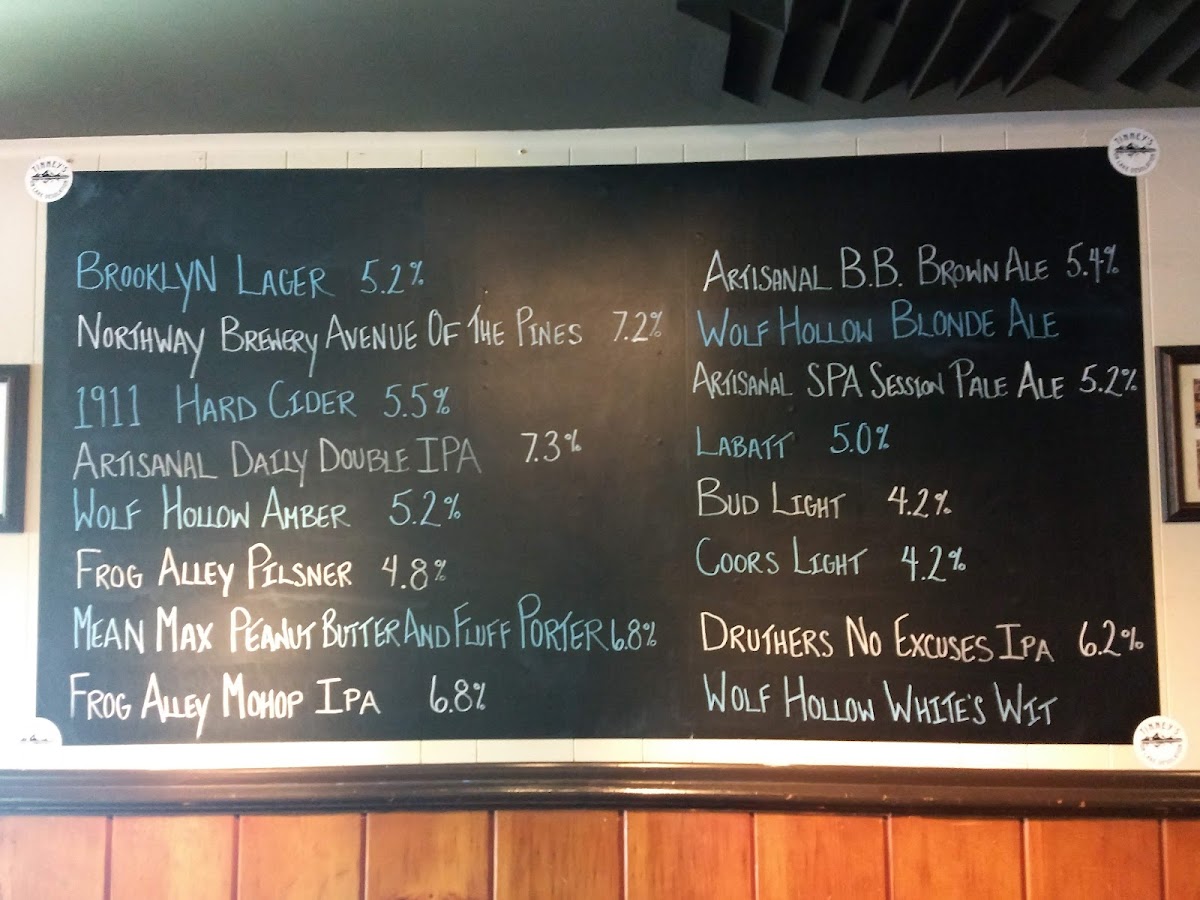 TIMMEY'S
TIMMEY'S
BROOKLYN LAGER 5.2%
NORTHWAY BREWERY AVENUE OF THE PINES 7.2%
1911 HARD CIDER 5.5%
ARTISANAL DAILY DOUBLE IPA 7.3%
WOLF HOLLOW AMBER 5.2%
FROG ALLEY PILSNER 4.8%
MEAN MAX PEANUT BUTTER AND FLUFF PORTER 6.8%
FROG ALLEY MOHOP IPA 6.8%
ARTISANAL B.B. BROWN ALE 5.4%
WOLF HOLLOW BLONDE ALE
ARTISANAL SPA SESSION PALE ALE 5.2%
LABATT 5.0%
BUD LIGHT 4.2%
COORS LIGHT 4.2%
DRUTHERS NO EXCUSES IPA 6.2%
WOLF HOLLOW WHITE'S WIT
TIMMEY'S